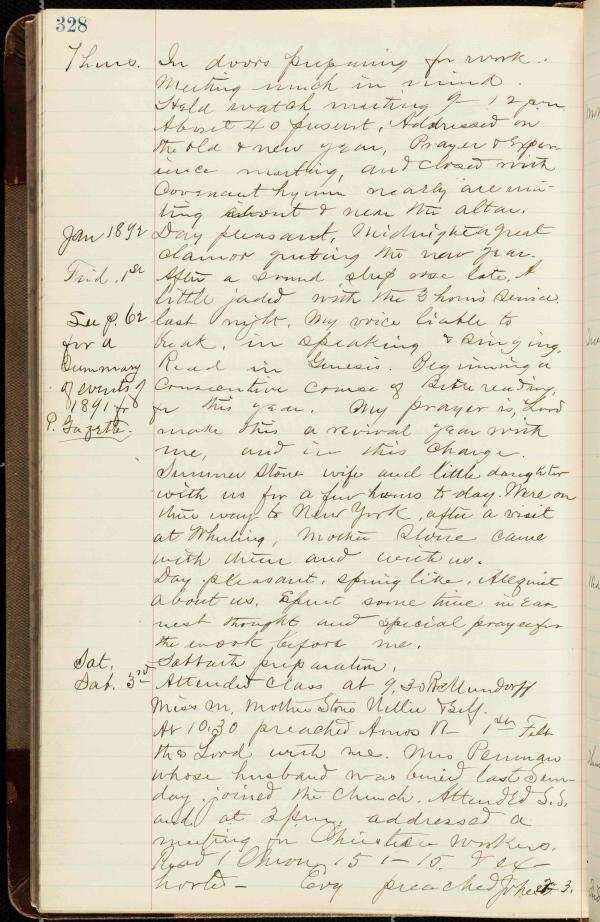 328
Thurs. In doors preparing for work.
Meeting much in mind.
Held watch meeting 9 - 12 pm
About 40 present. Addressed on
the old & new year, Prayer & Exper-
ience meeting, and closed with
Covenant hymn nearly all uni-
ting about & near the altar.
Jan 1892 Day pleasant, Midnight a great
clamor greeting the new year.
Frid. 1st After a sound sleep rose late. A
little jaded with the 3 hours service
See p. 62 last night. My voice liable to
for a break, in speaking & singing.
Summary Read in Genesis. Beginning a
of events of Consecutive course of Bible reading,
1891 for this year. My prayer is, Lord
P. Gazette. make this a revival year with
me, and in this charge.
Summer Stone wife and little daughter
with us for a few hours to day. Were on
their way to New York, after a visit
at Wheeling, Mother Stone came
with them and with us.
Day pleasant, spring like. All quiet
about us. Spent some time in ear-
nest thought and special prayer for
the work before me.
Sat. Sabbath preparation.
Sab. 3rd Attended class at 9.30
Miss M. Mother Stone Nellie & Self.
At 10.30 preached Amos Felt
the Lord with me. Mrs Penman
whose husband was buried last Sun-
day. joined the Church. Attended S.S.
and at 3 pm, addressed a
meeting on Christian workers.
Read 1 Chron 15 1-15. & ex-
horted - Evg preached John 3.